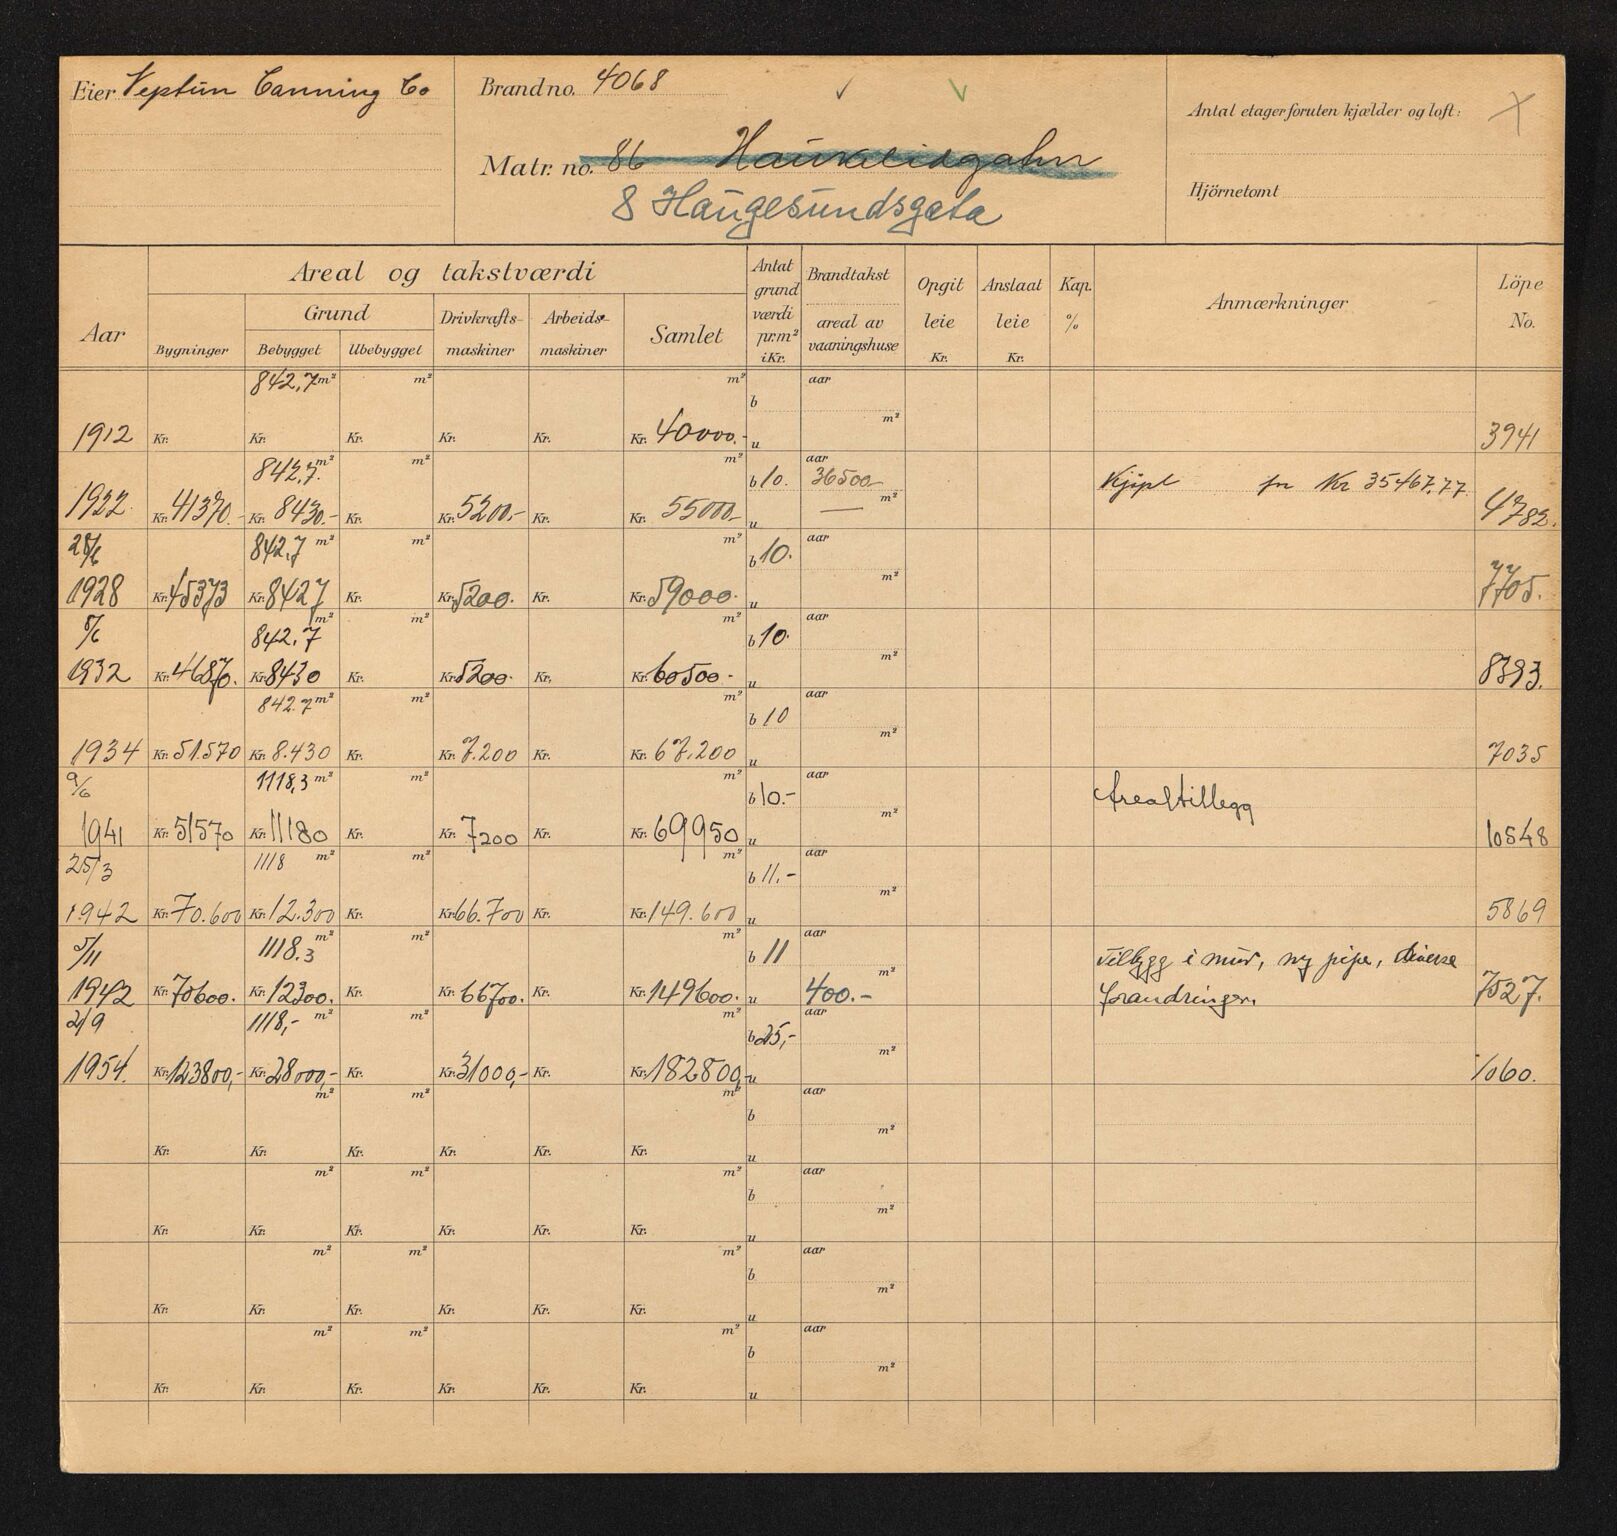 Eier Neptun Canning Co
Brand no. 4068
Matr. no. 86 Haukelidgaten
8 Haugesundsgata
Antal etager foruten kjælder og loft:
Hjörnetomt
Aar
Areal og takstværdi
Bygninger
Grund
Bebygget Ubebygget
Drivkrafts-maskiner
Arbeids-maskiner
Samlet
Antat grund værdi pr. m² i Kr.
Brandtakst
areal av vaaningshuse
Opgit leie Kr.
Anslaat leie Kr.
Kap. %
Anmærkninger
Löpe No.
842,7 m² m² m² aar
b m²
1912 Kr. Kr. Kr. Kr. Kr. Kr. 40000.- u 3941
842,7 m² m² m² b 10. aar 36500 Kjøpt for Kr 35467.77
1922 Kr. 41370.- Kr. 8430.- Kr. Kr. 5200.- Kr. Kr. 55000.- u m² 4782.
28/6 842,7 m² m² m² b 10. aar
1928 Kr. 45373 Kr. 8427 Kr. Kr. 5200. Kr. Kr. 59000. u m² 7705.
8/6 842.7 m² m² m² b 10. aar
1932 Kr. 46870. Kr. 8430 Kr. Kr. 5200. Kr. Kr. 60500.- u m² 8393.
842.7 m² m² m² b 10 aar
1934 Kr. 51.570 Kr. 8.430 Kr. Kr. 7.200 Kr. Kr. 67.200 u m² 7035
9/6 1118,3 m² m² m² b 10.- aar Arealtillegg
1941 Kr. 51570 Kr. 11180 Kr. Kr. 7200 Kr. Kr. 69950 u m² 10548
25/3 1118 m² m² m² b 11.- aar
1942 Kr. 70.600 Kr. 12.300 Kr. Kr. 66.700 Kr. Kr. 149.600 u m² 5869
5/11 1118.3 m² m² m² b 11 aar Tilbygg i mur, ny pipe, diverse
1942 Kr. 70600. Kr. 12300. Kr. Kr. 66700. Kr. Kr. 149600. u m² 400.- forandringer. 7527.
2/9 1118,- m² m² m² b 25,- aar
1954. Kr. 123800,- Kr. 28000,- Kr. Kr. 31000,- Kr. Kr. 182800,- u m² 1060.
m² m² m² b aar
Kr. Kr. Kr. Kr. Kr. Kr. u m²
m² m² m² b aar
Kr. Kr. Kr. Kr. Kr. Kr. u m²
m² m² m² b aar
Kr. Kr. Kr. Kr. Kr. Kr. u m²
m² m² m² b aar
Kr. Kr. Kr. Kr. Kr. Kr. u m²